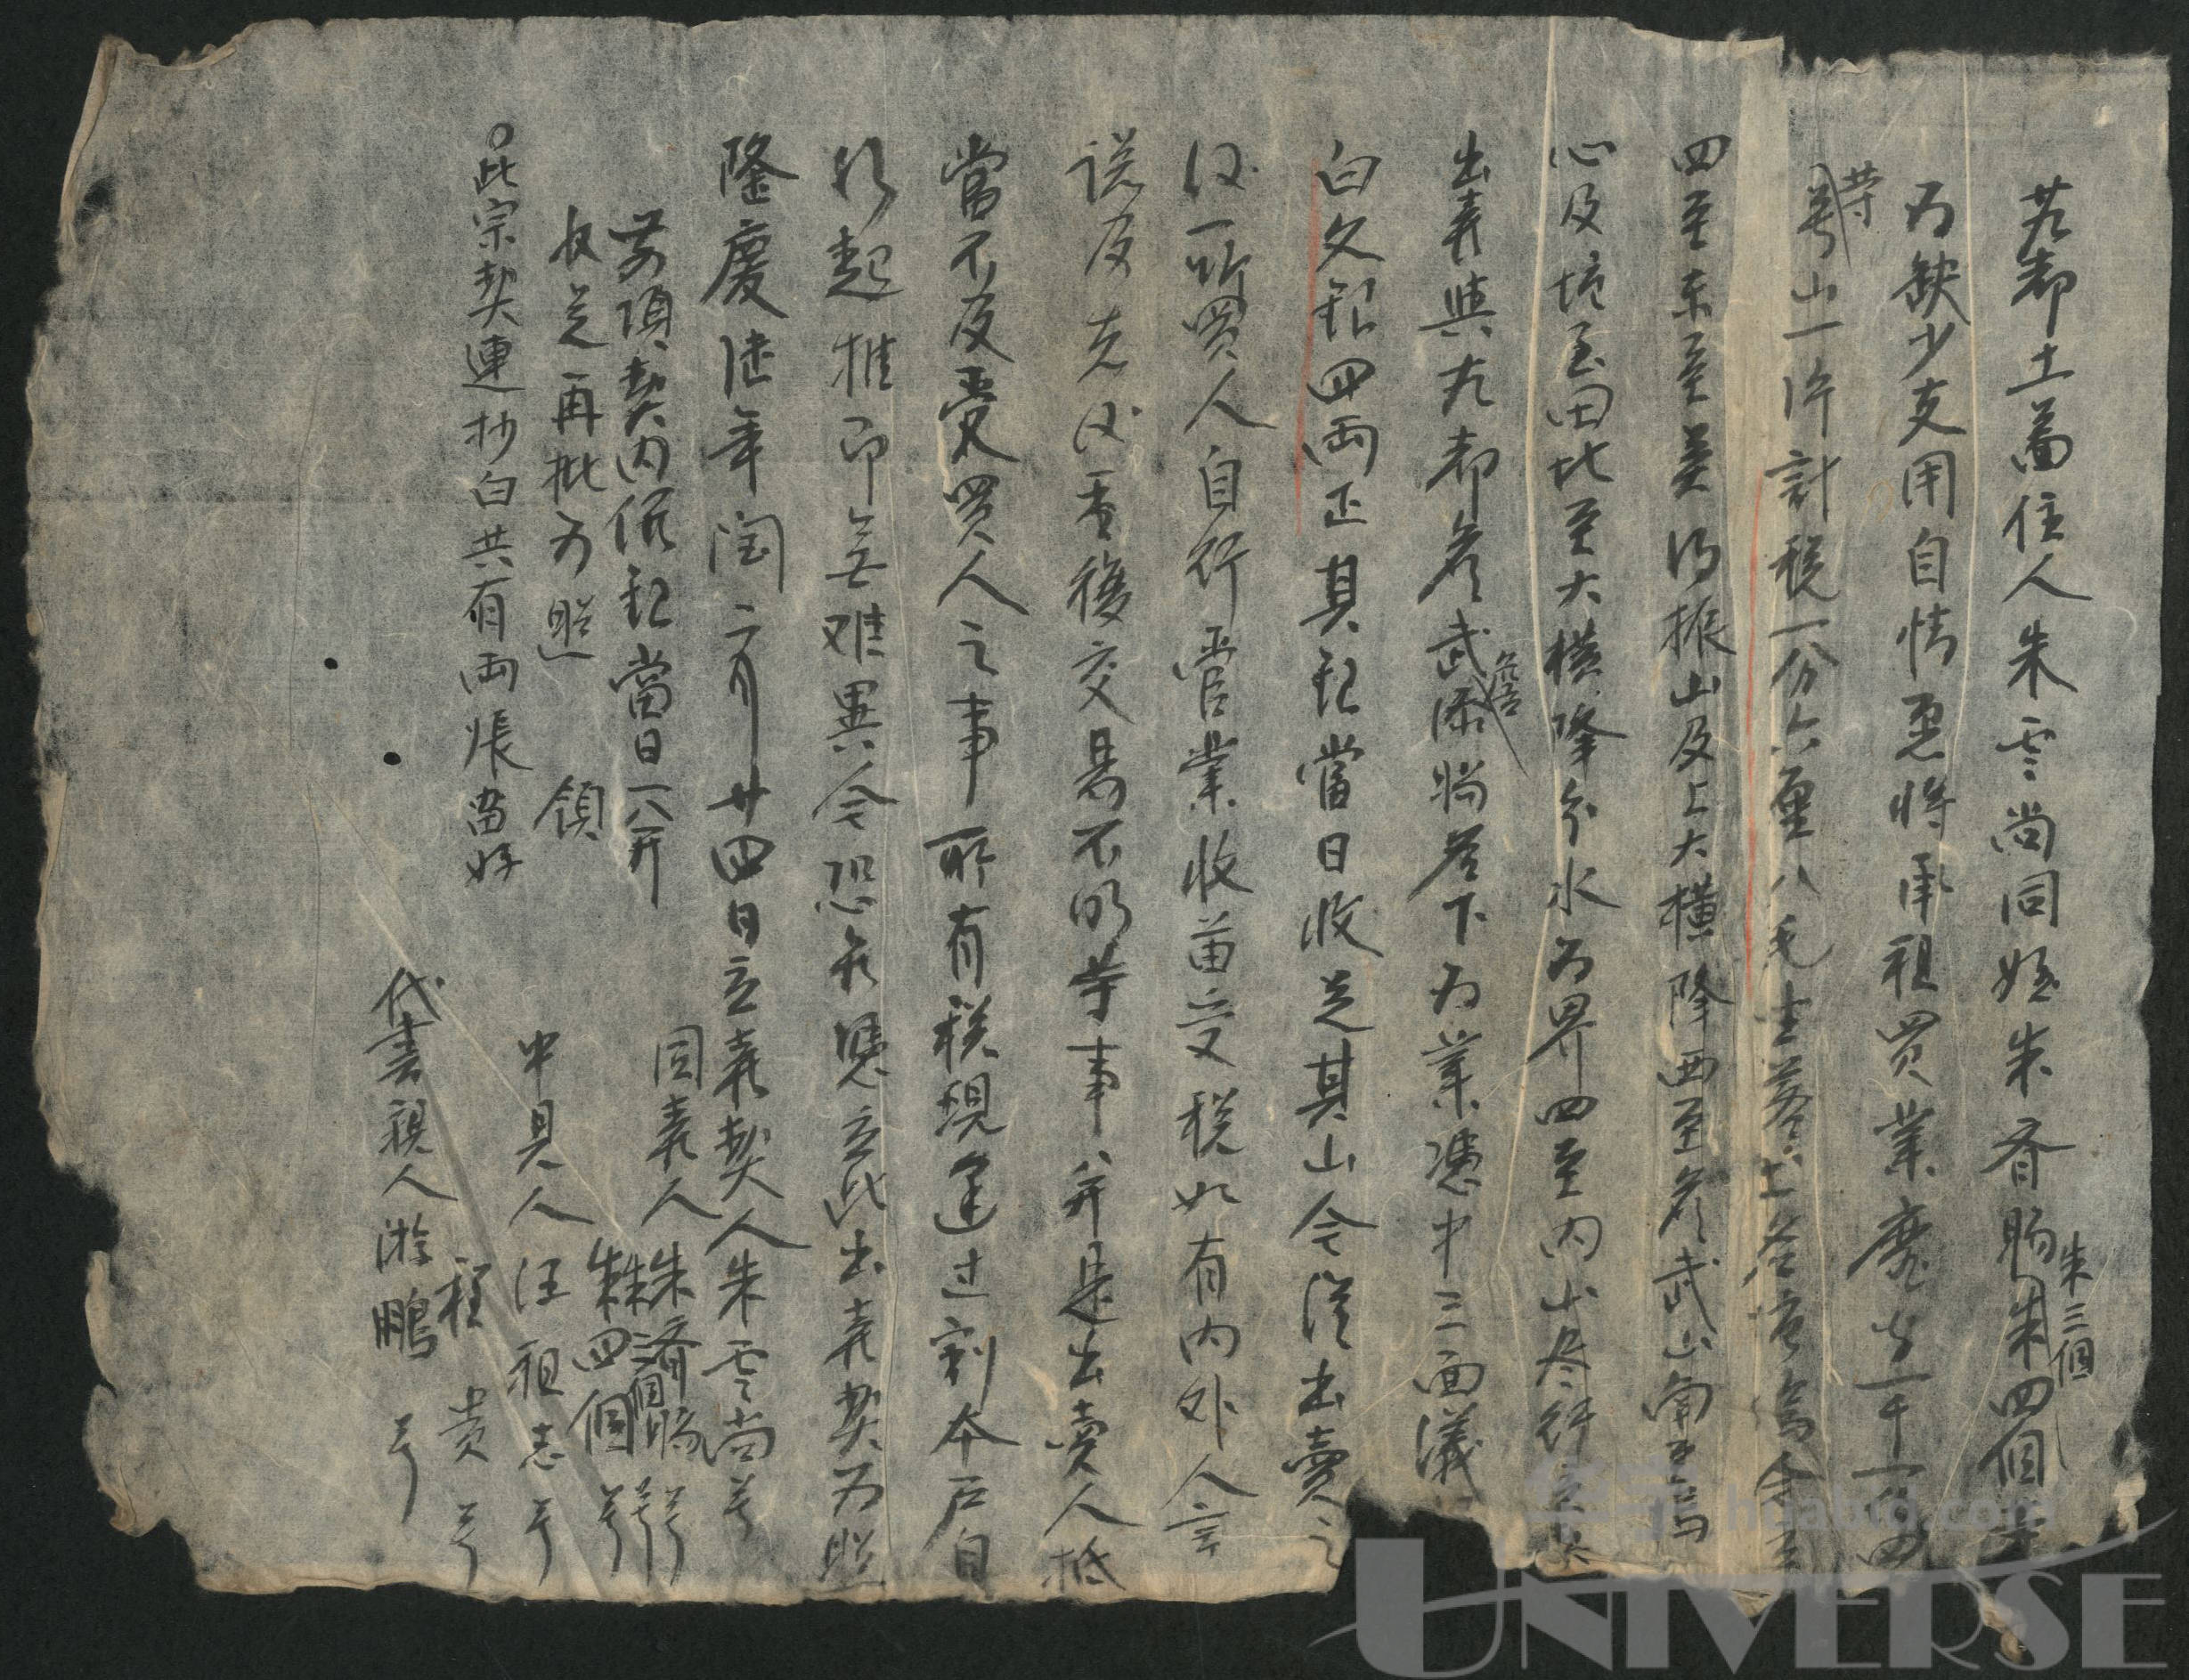 都土蕾住人朱雲尚同姪朱齊賜朱四個等
朱三個
為缺少支用自情愿將承祖買業 字一千一百四
等
號山一片計稅一分六厘八毛土名
四至東至 山及上大橫降西至詹武山南至
心及塆至田北至大橫降分水為界四至內山盡行立契
出賣與九都詹武添 名下為業憑中三面議
詹
白文銀四兩正其銀當日收足其山今從出賣之
後一听買人自行管業收苗受稅如有內外人言
說及先後重復交易不明等事并是出賣人抵
當不及受買人之事所有稅現造過割本戶自
行起推即無難異今恐無憑立此出賣契為照
隆慶陸年閏二月廿四日立賣契人朱雲尚号
同賣人朱濟賜号
朱三個号
朱四個号
前項契內價銀當日一并
收足再批為照 領
中見人汪祖志号
程貴号
○此宗契連抄白共有兩張留好
代書親人游鵬号
華寶 huabid.com
UNIVERSE